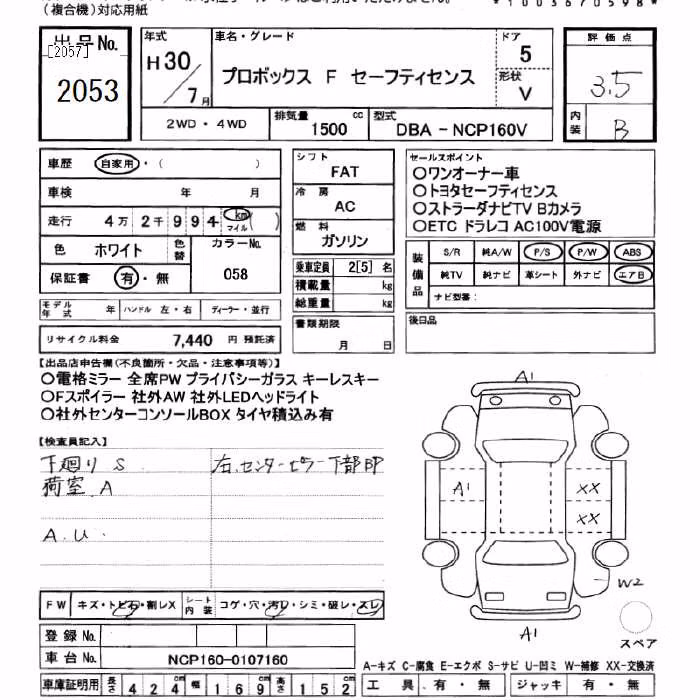 (複合機)対応用紙
*1003670598*
出品No.
[2057]
2053
年式
H30/7月
車名・グレード
プロボックス F セーフティセンス
ドア
5
形状
V
評価点
3.5
内装
B
2WD・4WD
排気量
1500 cc
型式
DBA - NCP160V
車歴 自家用・( )
車検 年 月
走行 4万2千994 km マイル ( )
色 ホワイト
色替
カラーNo.
058
保証書 有・無
モデル年式 年 ハンドル 左・右 ディーラー・並行
リサイクル料金 7,440 円 預託済
シフト
FAT
冷房
AC
燃料
ガソリン
乗車定員 2[5] 名
積載量 kg
総重量 kg
書類期限
月 日
セールスポイント
〇ワンオーナー車
〇トヨタセーフティセンス
〇ストラーダナビTV Bカメラ
〇ETC ドラレコ AC100V電源
装備品
S/R 純A/W P/S P/W ABS
純TV 純ナビ 革シート 外ナビ エアB
ナビ型番:
後日品
【出品店申告欄(不良箇所・欠品・注意事項等)】
〇電格ミラー 全席PW プライバシーガラス キーレスキー
〇Fスポイラー 社外AW 社外LEDヘッドライト
〇社外センターコンソールBOX タイヤ積込み有
【検査員記入】
下廻り S
荷室 A
A.U.
右.センターピラー下部凹
A1
A1
XX
XX
W2
A1
スペア
FW キズ・トビ石・割レX
シート内装 コゲ・穴・汚レ・シミ・破レ・スレ
登録No.
車台No. NCP160-0107160
車庫証明用 長さ 424cm 幅 169cm 高さ 152cm
A-キズ C-腐食 E-エクボ S-サビ U-凹ミ W-補修 XX-交換済
工具 有・無 ジャッキ 有・無